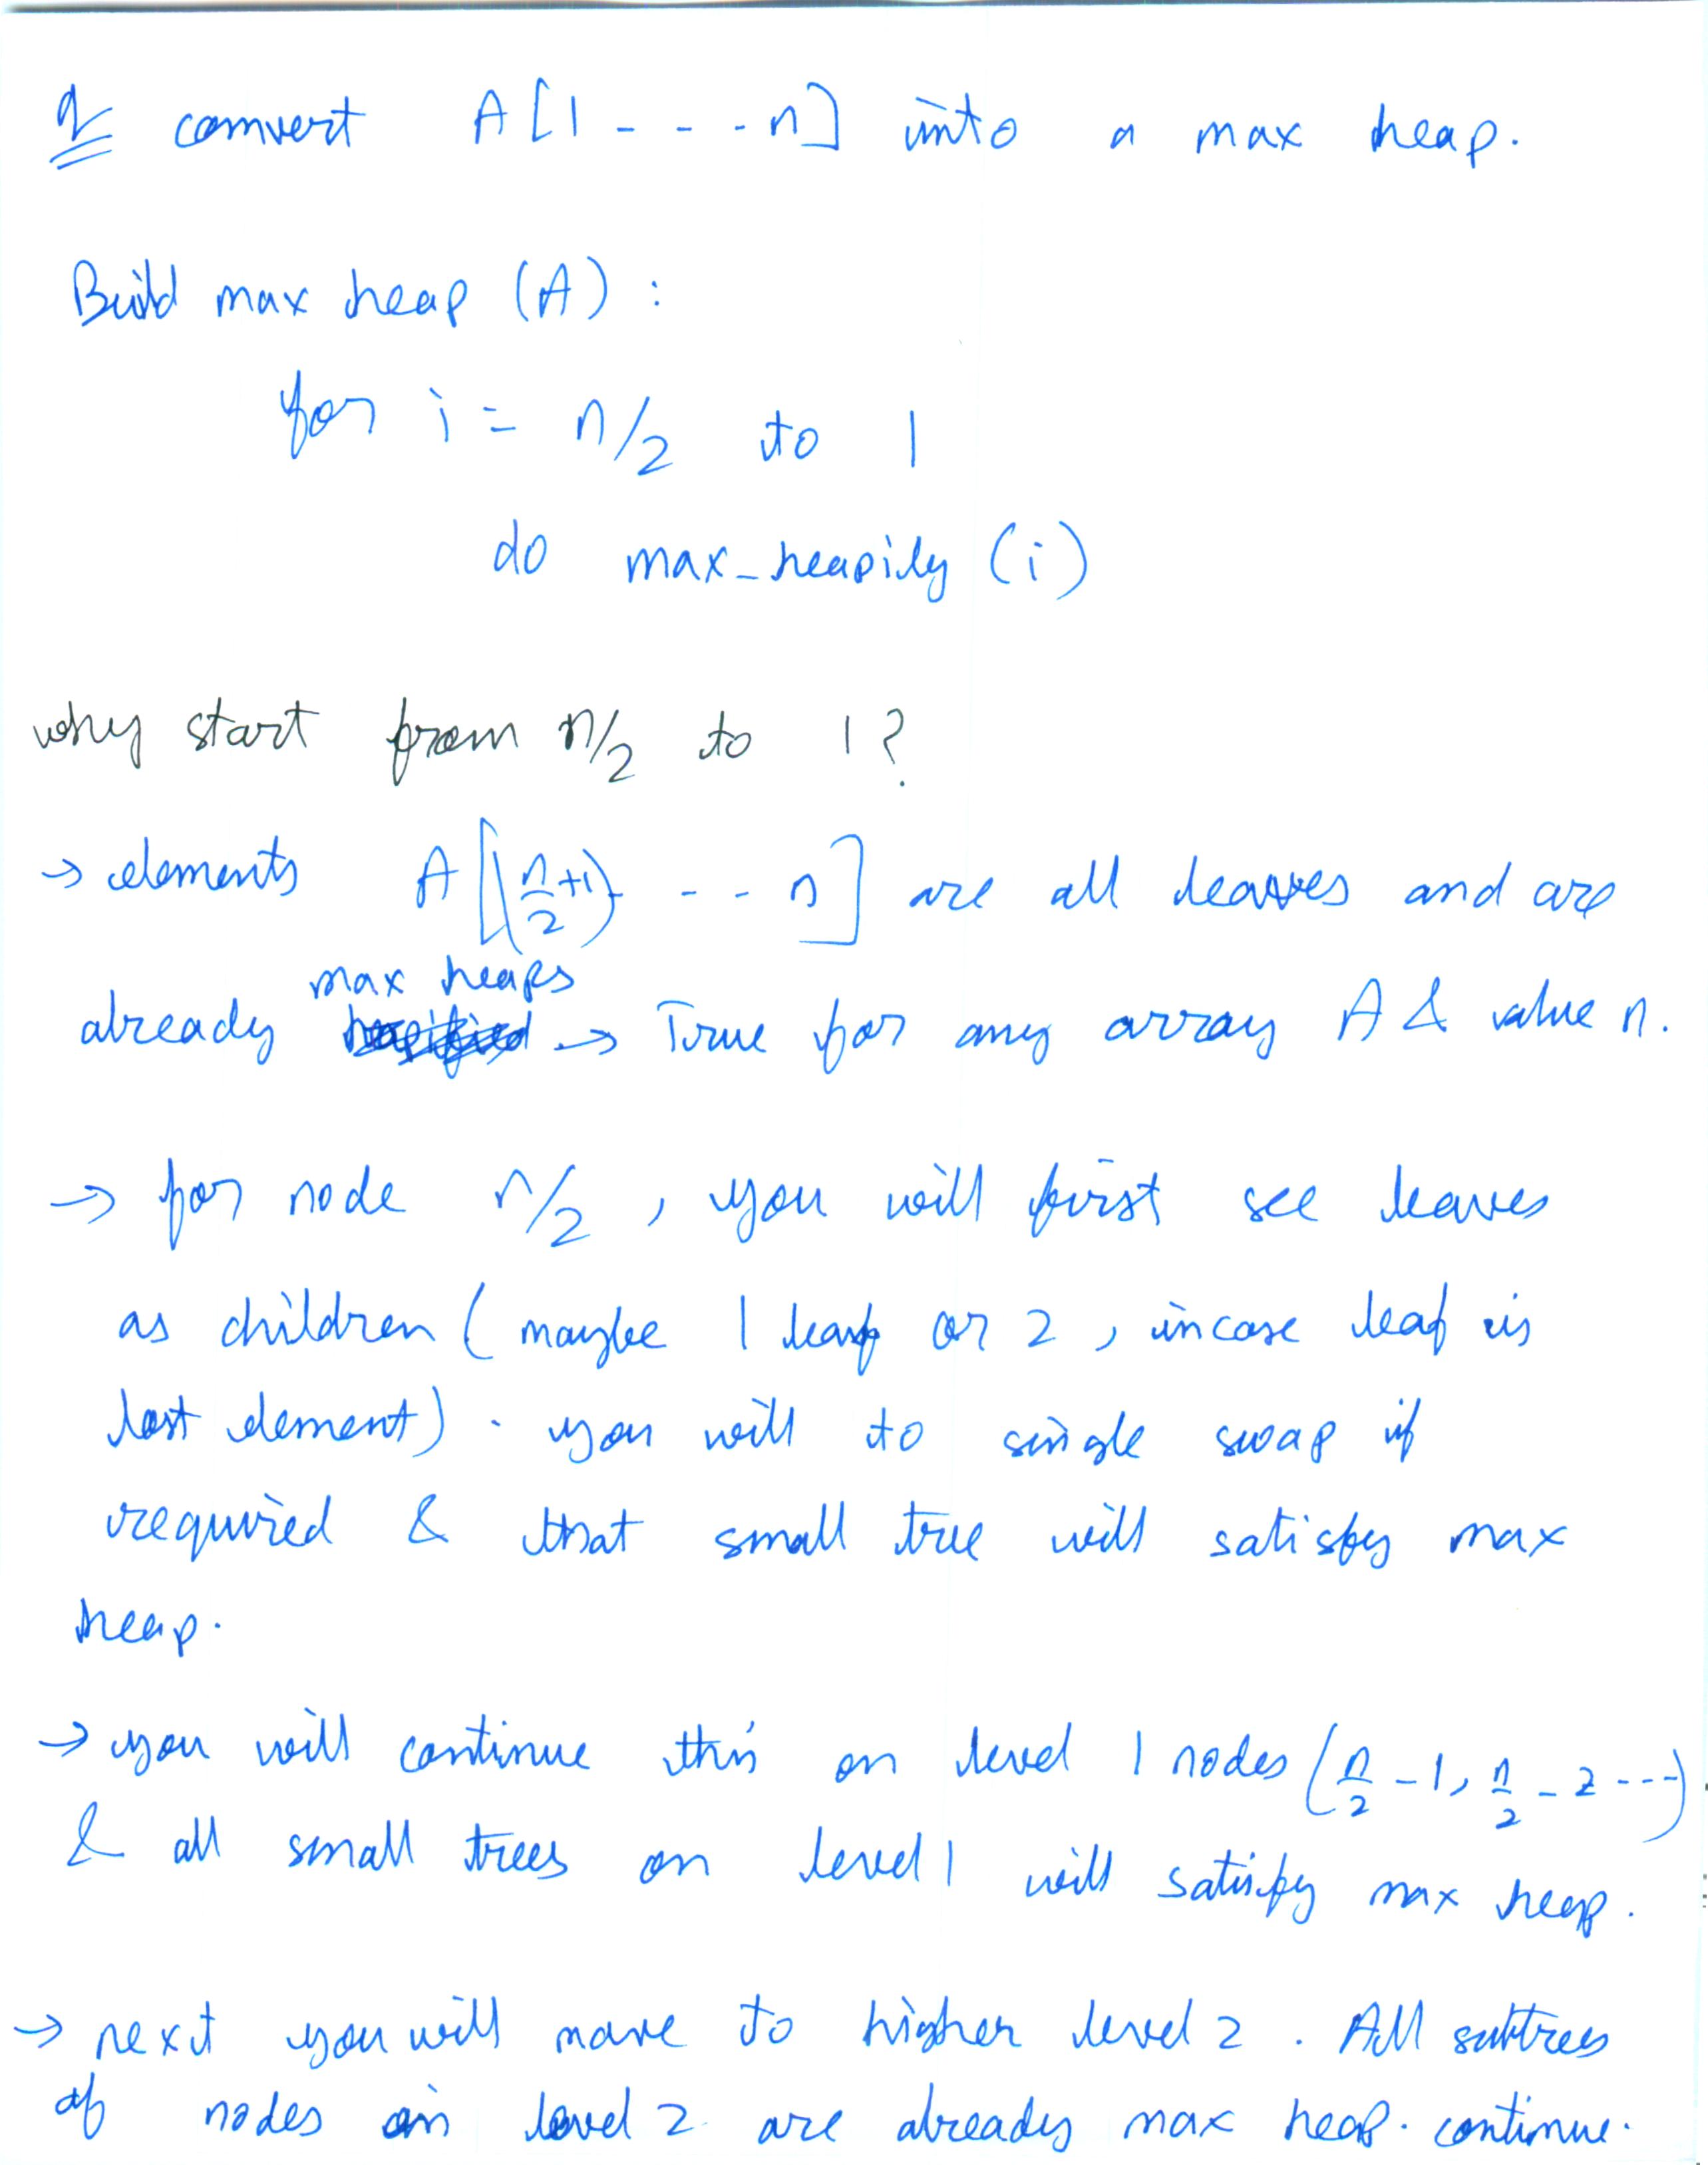 Q convert A[1 - - - n] into a max heap.
Build max heap (A) :
for i = n/2 to 1
do max_heapify (i)
why start from n/2 to 1?
→ elements A[(n/2+1) - - n] are all leaves and are
max heaps
already → True for any array A & value n.
→ for node n/2 , you will first see leaves
as children ( maybe 1 leaf or 2 , incase leaf is
last element) . you will to single swap if
required & that small tree will satisfy max
heap.
→ you will continue this on level 1 nodes (n/2 - 1, n/2 - 2 ---)
& all small trees on level 1 will satisfy max heap.
→ next you will move to higher level 2 . All subtrees
of nodes on level 2 are already max heap. continue.